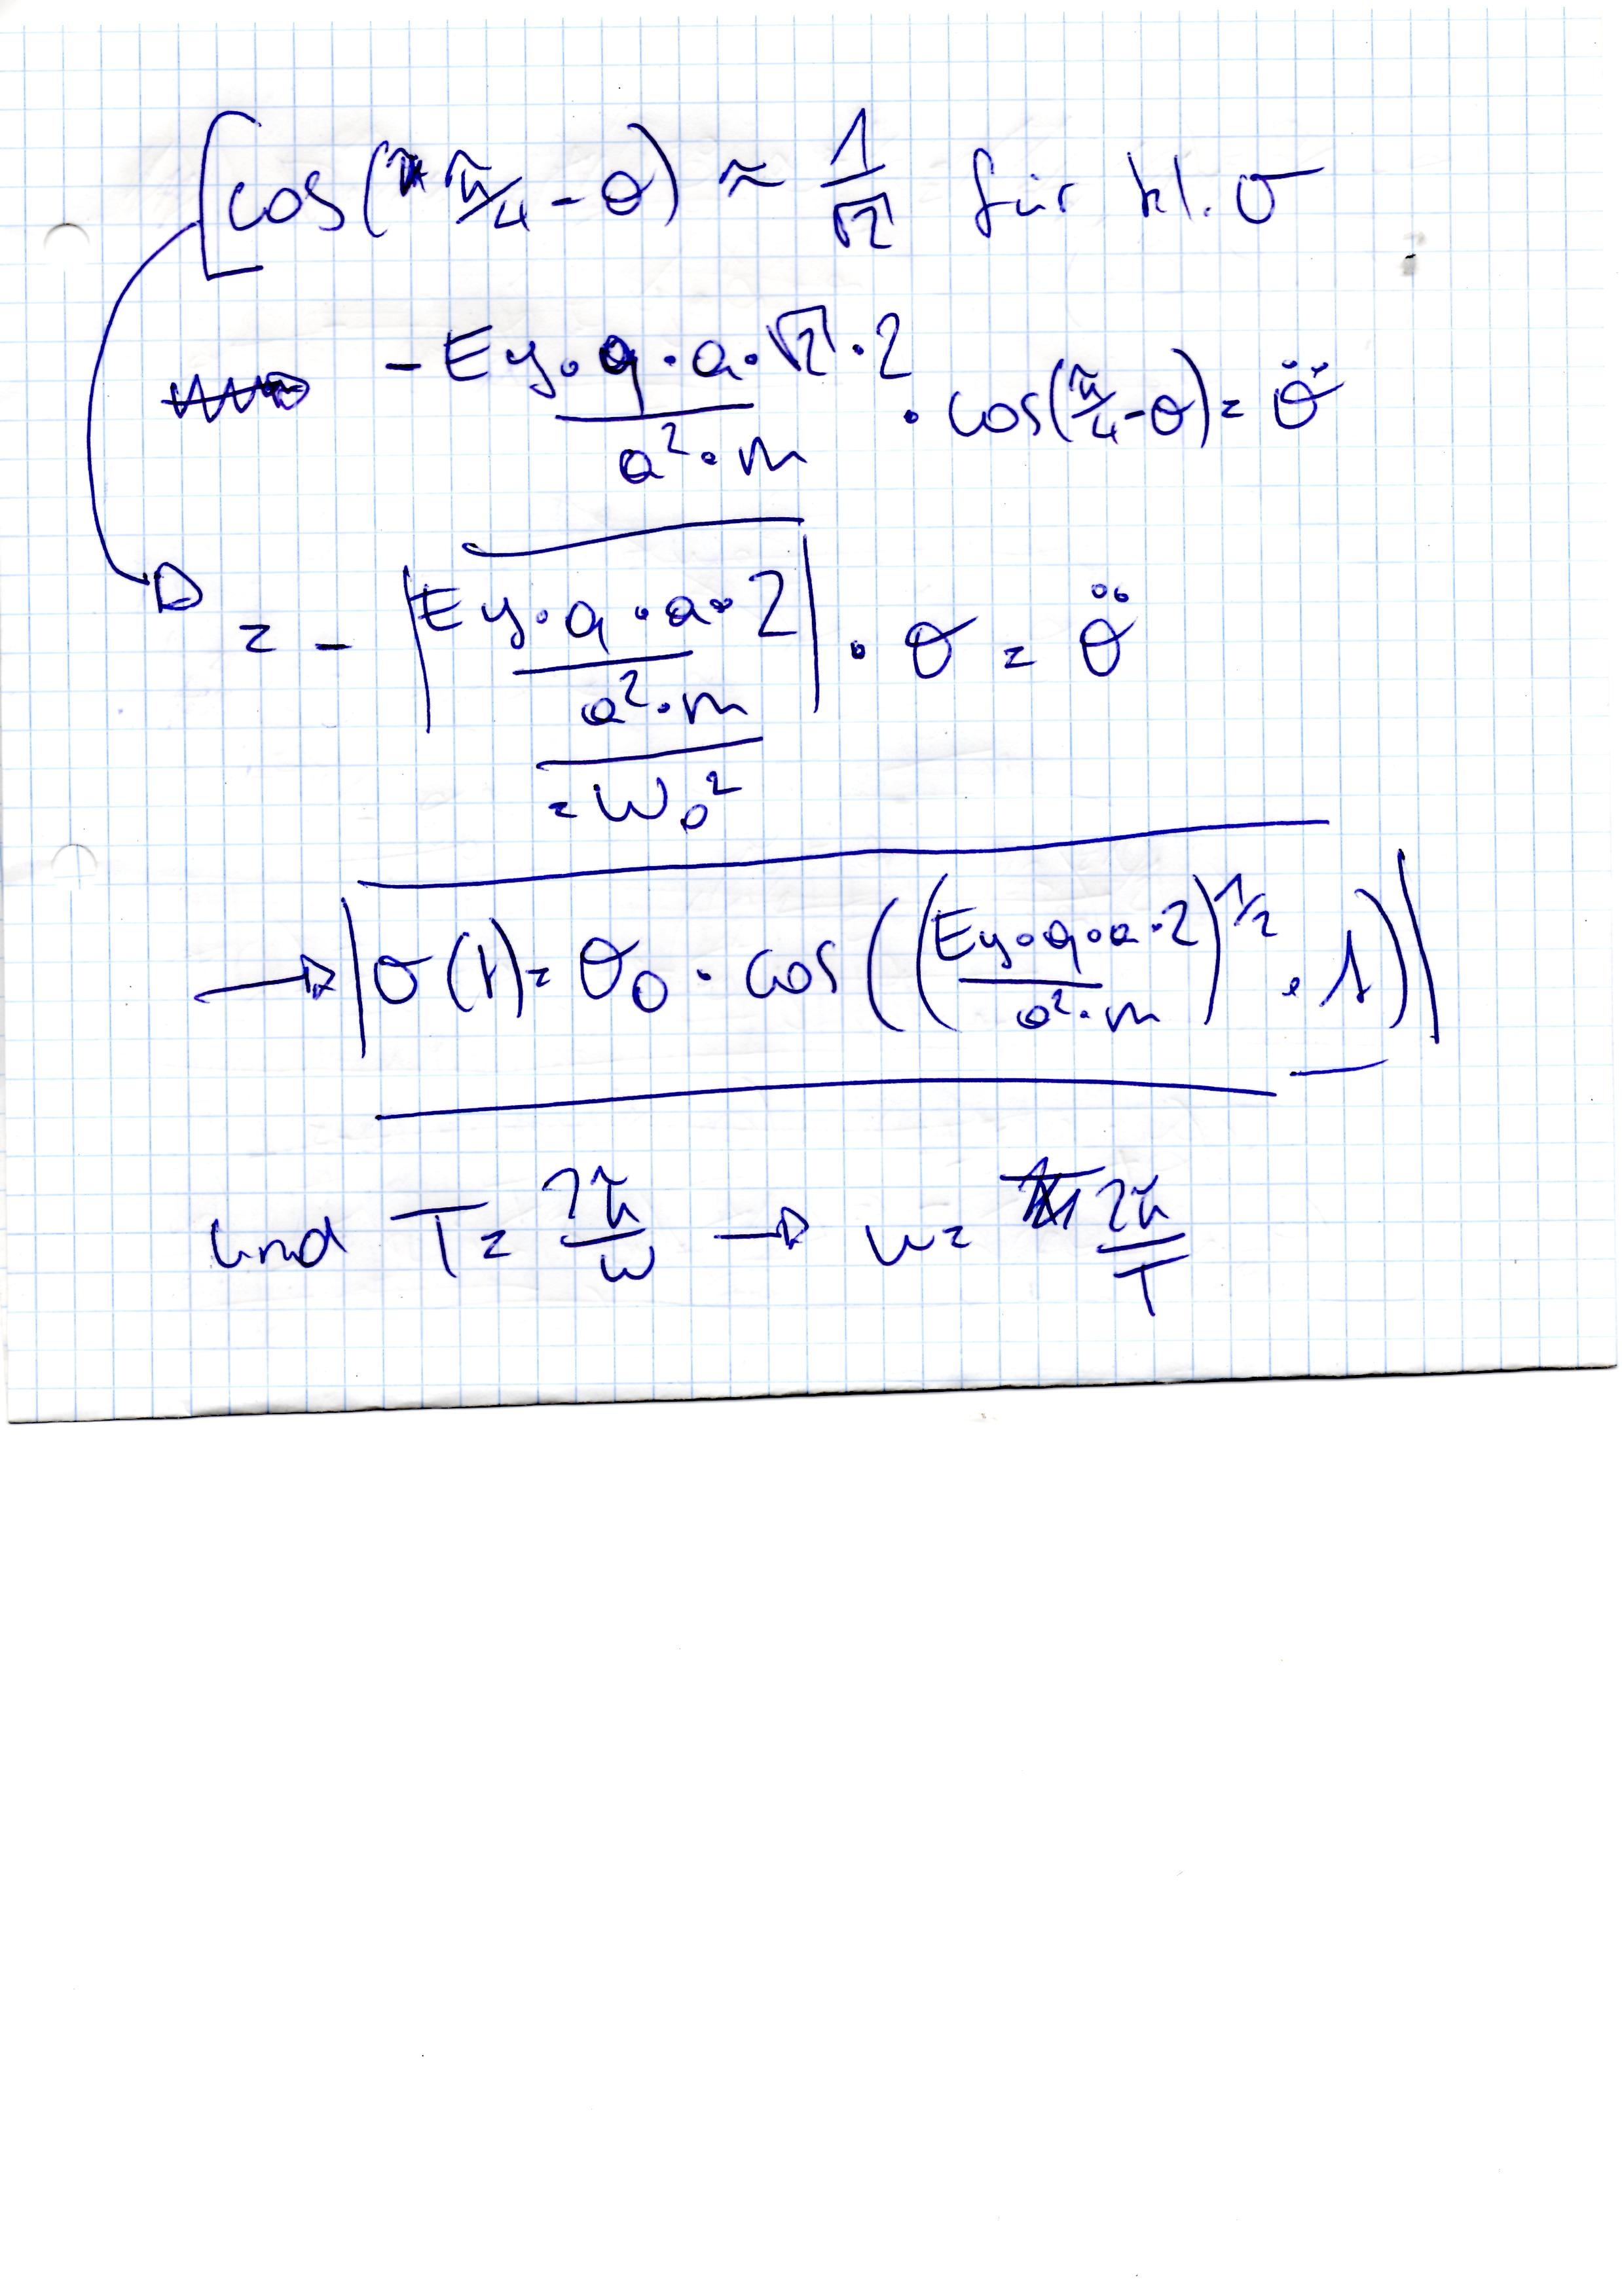 [cos(π/4 - θ) ≈ 1/√2 für kl. θ
- Ey·q·a·√2·2 / a²·m · cos(π/4 - θ) = θ̈
= - |Ey·q·a·2 / a²·m| · θ = θ̈
= ω₀²
→ |θ(t) = θ₀ · cos((Ey·q·a·2 / a²·m)^1/2 · t)|
und T = 2π/ω → ω = 2π/T